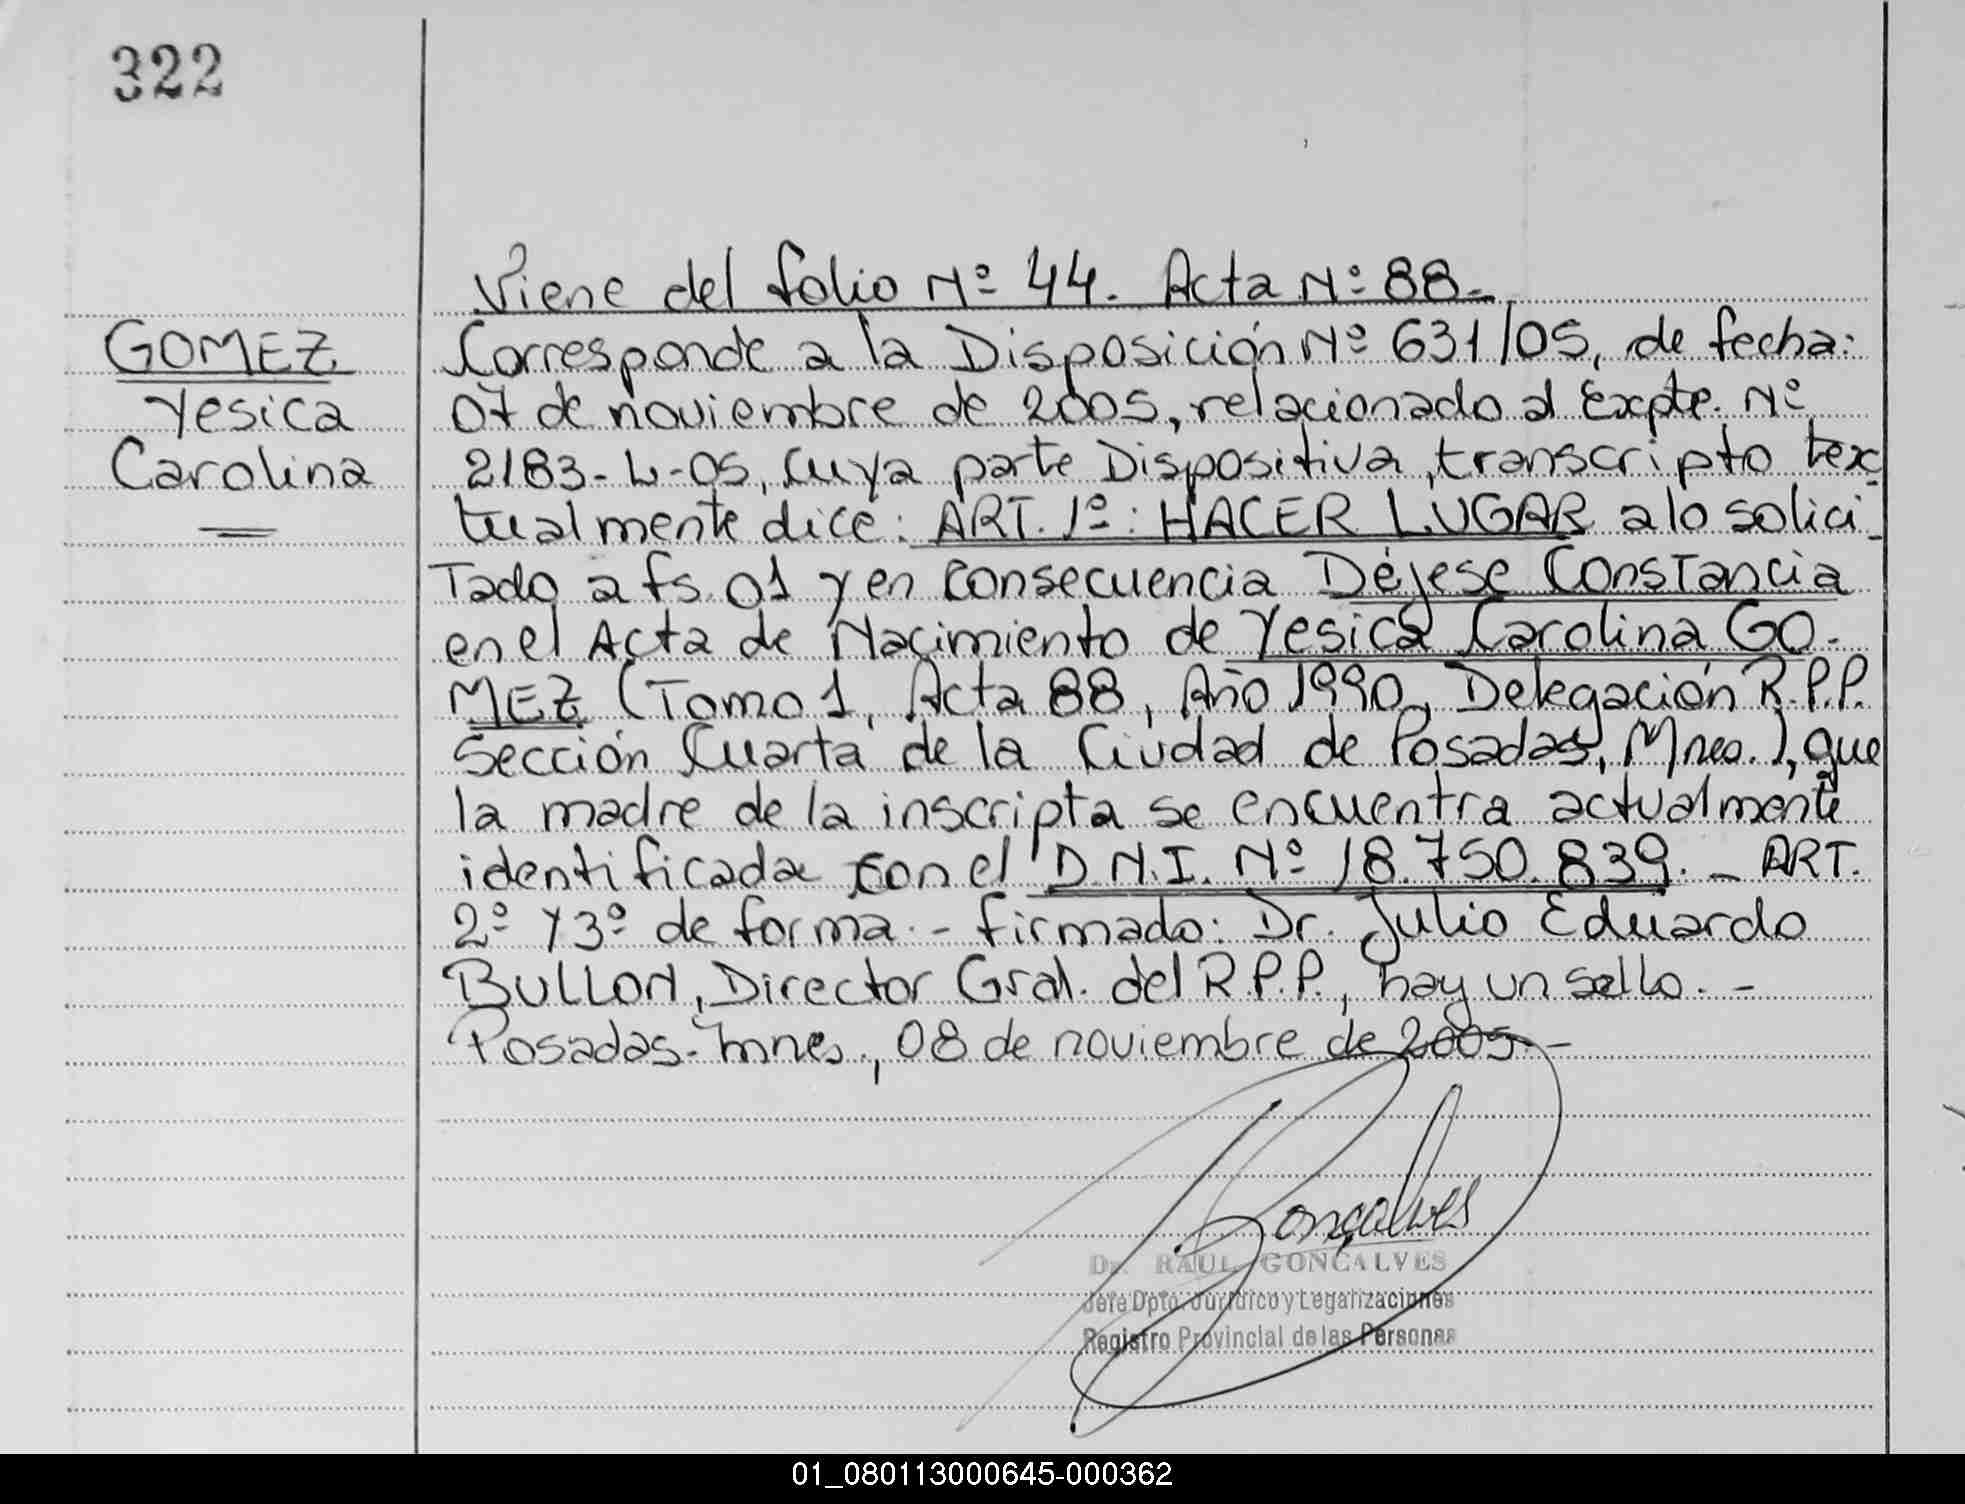 322
Viene del folio Nº 44. Acta Nº 88.-
GOMEZ
Yesica
Carolina
Corresponde a la Disposición Nº 631/05, de fecha:
07 de noviembre de 2005, relacionado al Expte. Nº
2183-L-05, cuya parte Dispositiva, transcripto tex-
tualmente dice: ART. 1º: HACER LUGAR a lo solici-
tado a fs. 01 y en consecuencia Déjese Constancia
en el Acta de Nacimiento de Yesica Carolina GO-
MEZ (Tomo 1, Acta 88, Año 1990, Delegación R.P.P.
Sección Cuarta de la Ciudad de Posadas, Mnes.), que
la madre de la inscripta se encuentra actualmente
identificada con el D.N.I. Nº 18.750.839.- ART.
2º y 3º de forma.- firmado: Dr. Julio Eduardo
BULLON, Director Gral. del R.P.P., hay un sello.-
Posadas-Mnes., 08 de noviembre de 2005.-
Gonçalves
Dr. RAUL GONCALVES
Jefe Dpto. Jurídico y Legalizaciones
Registro Provincial de las Personas
01_080113000645-000362